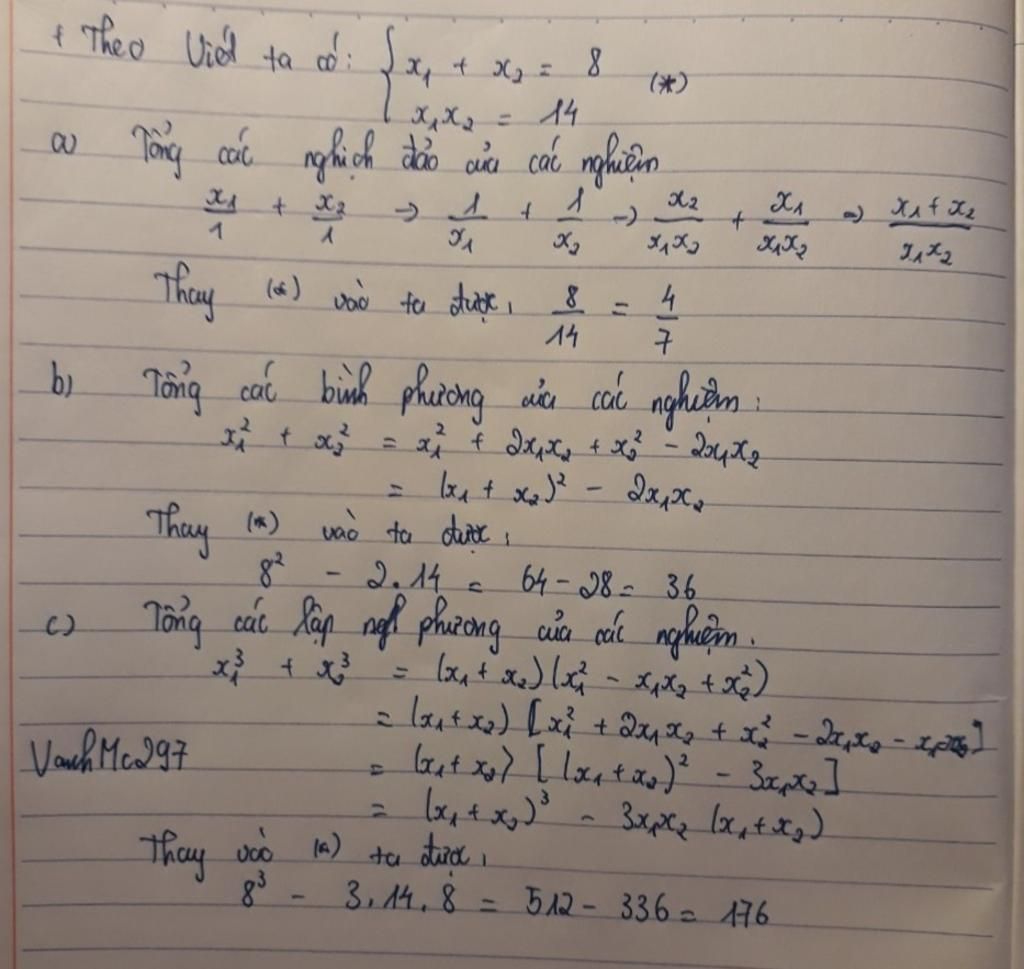 + Theo Viét ta có: { x₁ + x₂ = 8 (*)
x₁x₂ = 14
a) Tổng các nghịch đảo của các nghiệm
x₁/1 + x₂/1 → 1/x₁ + 1/x₂ → x₂/x₁x₂ + x₁/x₁x₂ → x₁ + x₂/x₁x₂
Thay (*) vào ta được, 8/14 = 4/7
b) Tổng các bình phương của các nghiệm:
x₁² + x₂² = x₁² + 2x₁x₂ + x₂² - 2x₁x₂
= (x₁ + x₂)² - 2x₁x₂
Thay (*) vào ta được,
8² - 2.14 = 64 - 28 = 36
c) Tổng các lập phương của các nghiệm.
x₁³ + x₂³ = (x₁ + x₂)(x₁² - x₁x₂ + x₂²)
= (x₁ + x₂) [x₁² + 2x₁x₂ + x₂² - 2x₁x₂ - x₁x₂]
VanhMc297
= (x₁ + x₂) [(x₁ + x₂)² - 3x₁x₂]
= (x₁ + x₂)³ - 3x₁x₂ (x₁ + x₂)
Thay vào (*) ta được,
8³ - 3.14.8 = 512 - 336 = 176